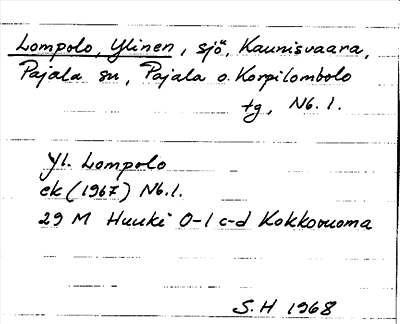 Lompolo, Ylinen, sjö, Kaunisvaara,
Pajala sn, Pajala o. Korpilombolo
tg, Nb. l.
Yl. Lompolo
ek (1967) Nb. l.
29 M Huuki 0-1 c-d Kokkovuoma
S.H 1968